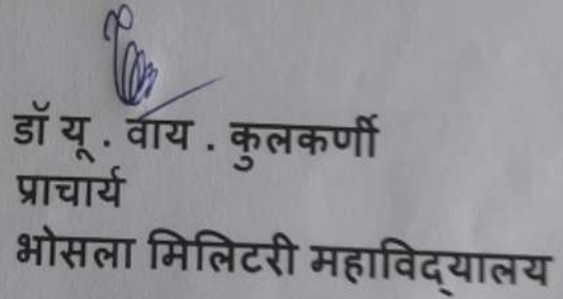 डॉ यू . वाय . कुलकर्णी
प्राचार्य
भोसला मिलिटरी महाविद्‌यालय